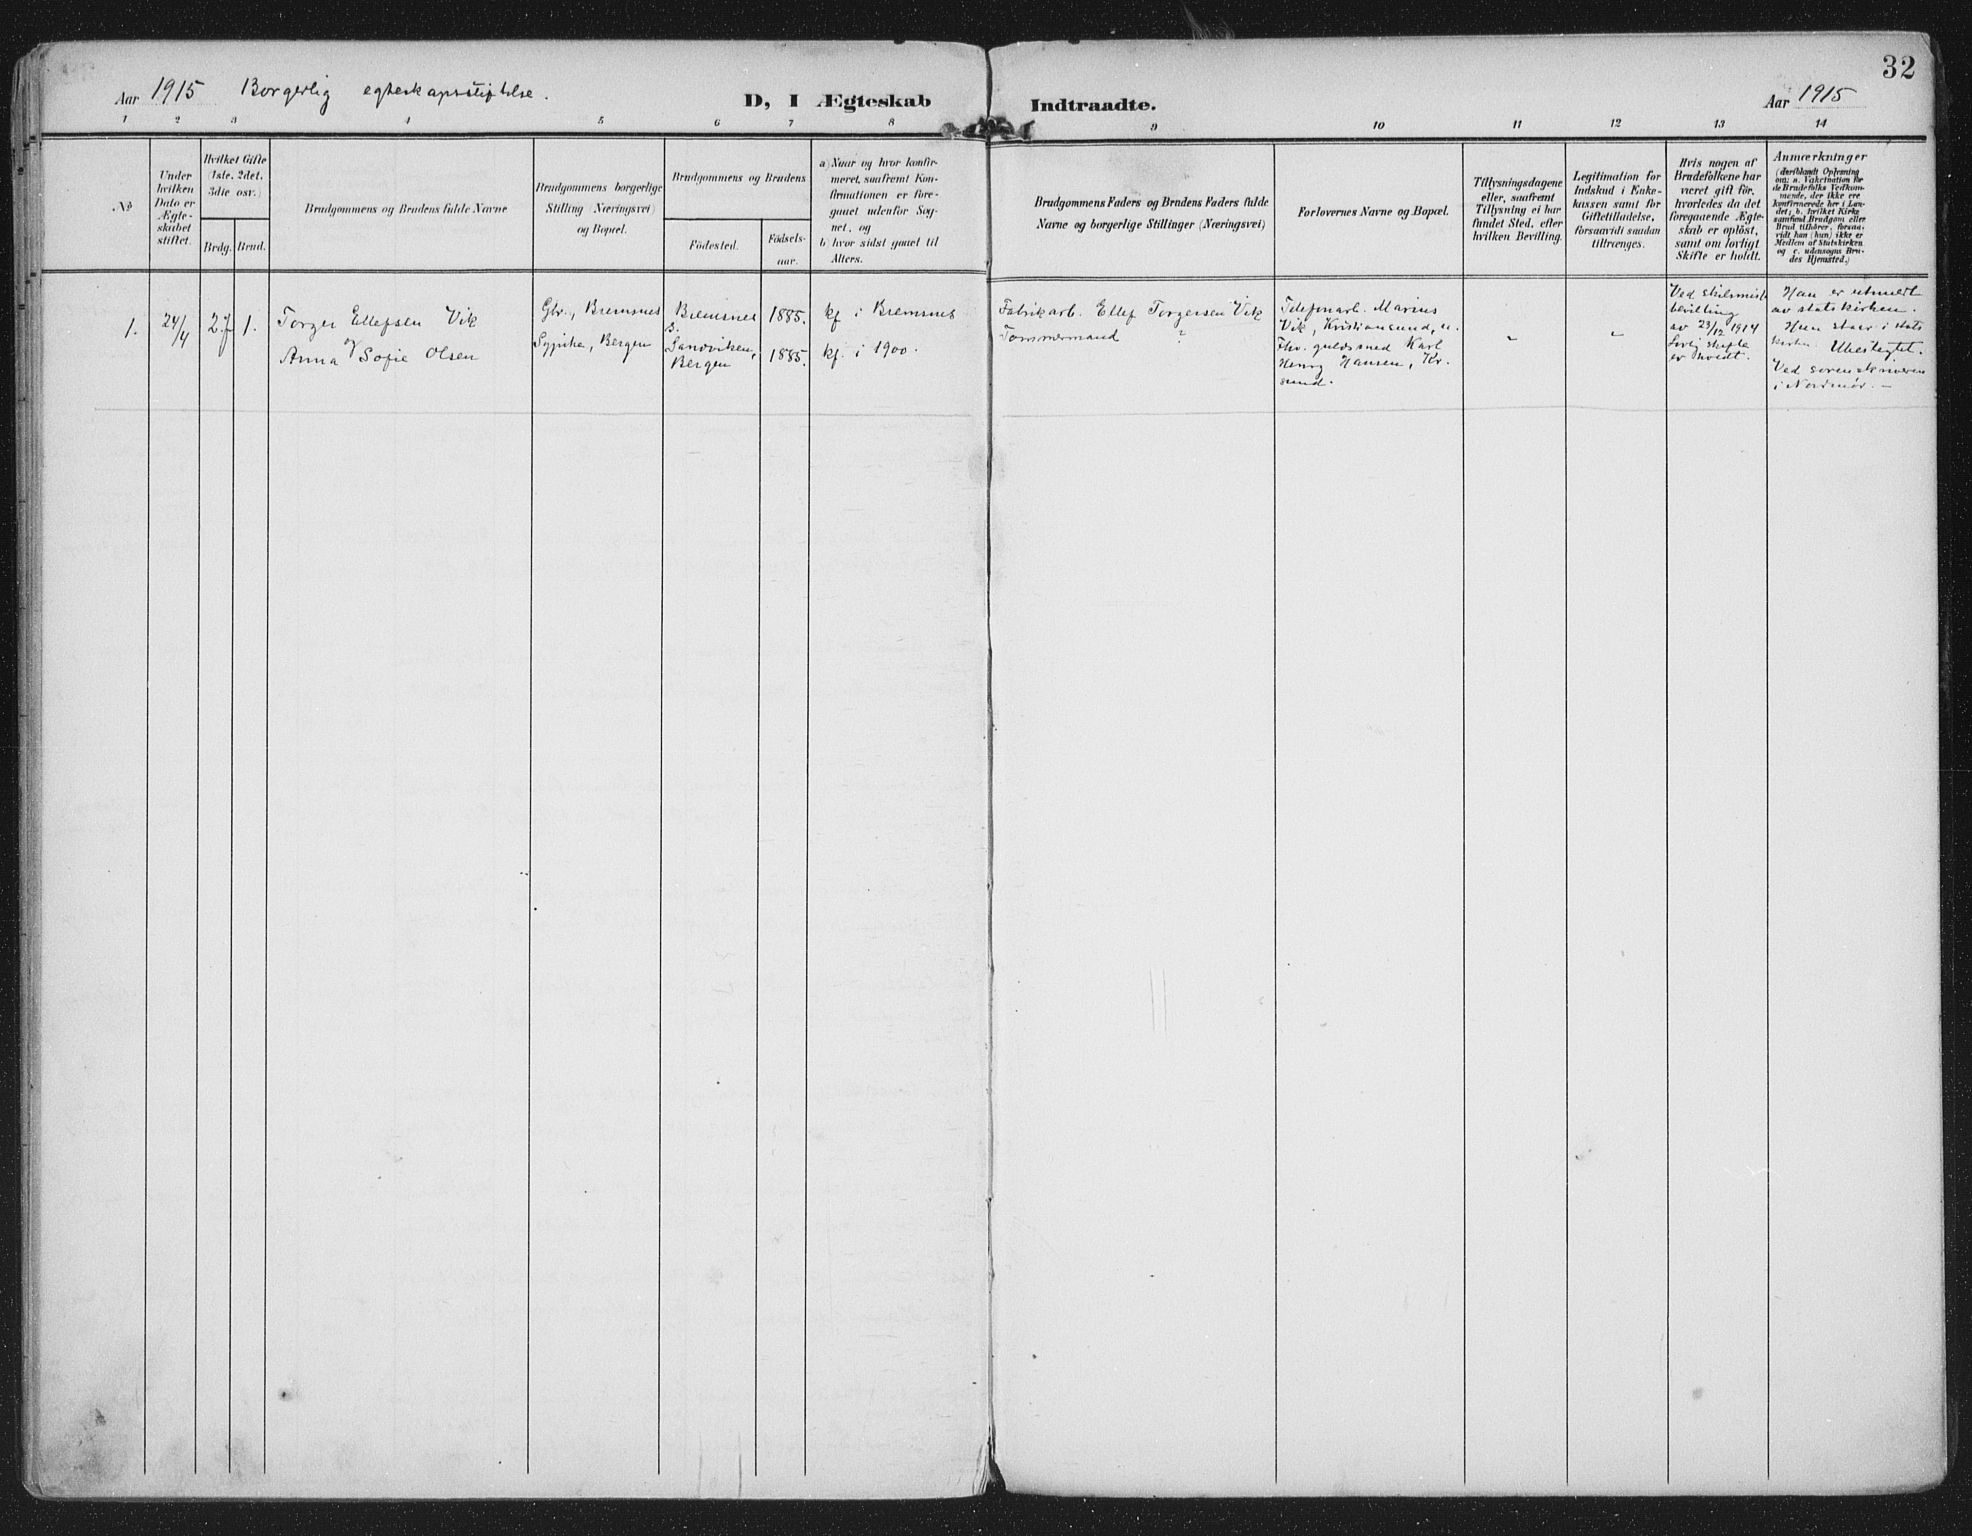 Aar 1915 Borgerlig egteskapsstiftelse.
D, I Ægteskab Indtraadte.
Aar 1915
32
1 2 3 4 5 6 7 8 9 10 11 12 13 14
No
Under
hvilken
Dato er
Ægte-
skabet
stiftet.
Hvilket Gifte
(1ste, 2det,
3die osv.)
Brdg. Brud.
Brudgommens og Brudens fulde Navne
Brudgommens borgerlige
Stilling (Næringsvei)
og Bopæl.
Brudgommens og Brudens
Fødested.
Fødsels-
aar.
a) Naar og hvor konfir-
meret, saafremt Kon-
firmationen er fore-
gaaet udenfor Sog-
net, og
b) hvor sidst gaaet til
Alters.
Brudgommens Faders og Brudens Faders fulde
Navne og borgerlige Stillinger (Næringsvei)
Forlovernes Navne og Bopæl.
Tillysningsdagene
eller, saafremt
Tillysning ei har
fundet Sted, efter
hvilken Bevilling.
Legitimation for
Indskud i Enke-
kassen samt for
Giftetilladelse,
forsaavidt saadan
tiltrænges.
Hvis nogen af
Brudefolkene har
været gift før,
hvorledes da det
foregaaende Ægte-
skab er opløst,
samt om lovligt
Skifte er holdt.
Anmærkninger
(deriblandt Oplysning
om: a. Vakcination for
de Brudefolks Vedkom-
mende, der ikke ere
konfirmerede her i Lan-
det; b. hvilket Kirke
samfund Brudgom eller
Brud tilhører, forsaa-
vidt han (hun) ikke er
Medlem af Statskirken
og c. udensogns Bru-
des Hjemsted.)
1. 24/4 2. 1.
Torger Ellefsen Vik
og
Anna Sofie Olsen
Gbr., Bremsnes
Sypike, Bergen
Bremsnes
Sandviken,
Bergen
1885.
1885.
kf i Bremsnes
kf. i 1900.
Fabrikarb. Ellef Torgersen Vik
Tømmermand ?
Telefonarb. Marius
Vik, Kristiansund, n.
Fhv. guldsmed Karl
Henry Hansen, Kr.
sund.
"
"
Ved skilsmisse
bevilling
av 29/12 1914
Lovlig skifte
er holdt.
Han er utmeldt
av statskirken.
Hun staar i stats
kirken. Ubeslegtet.
Ved sorenskriveren
i Nordmør. –